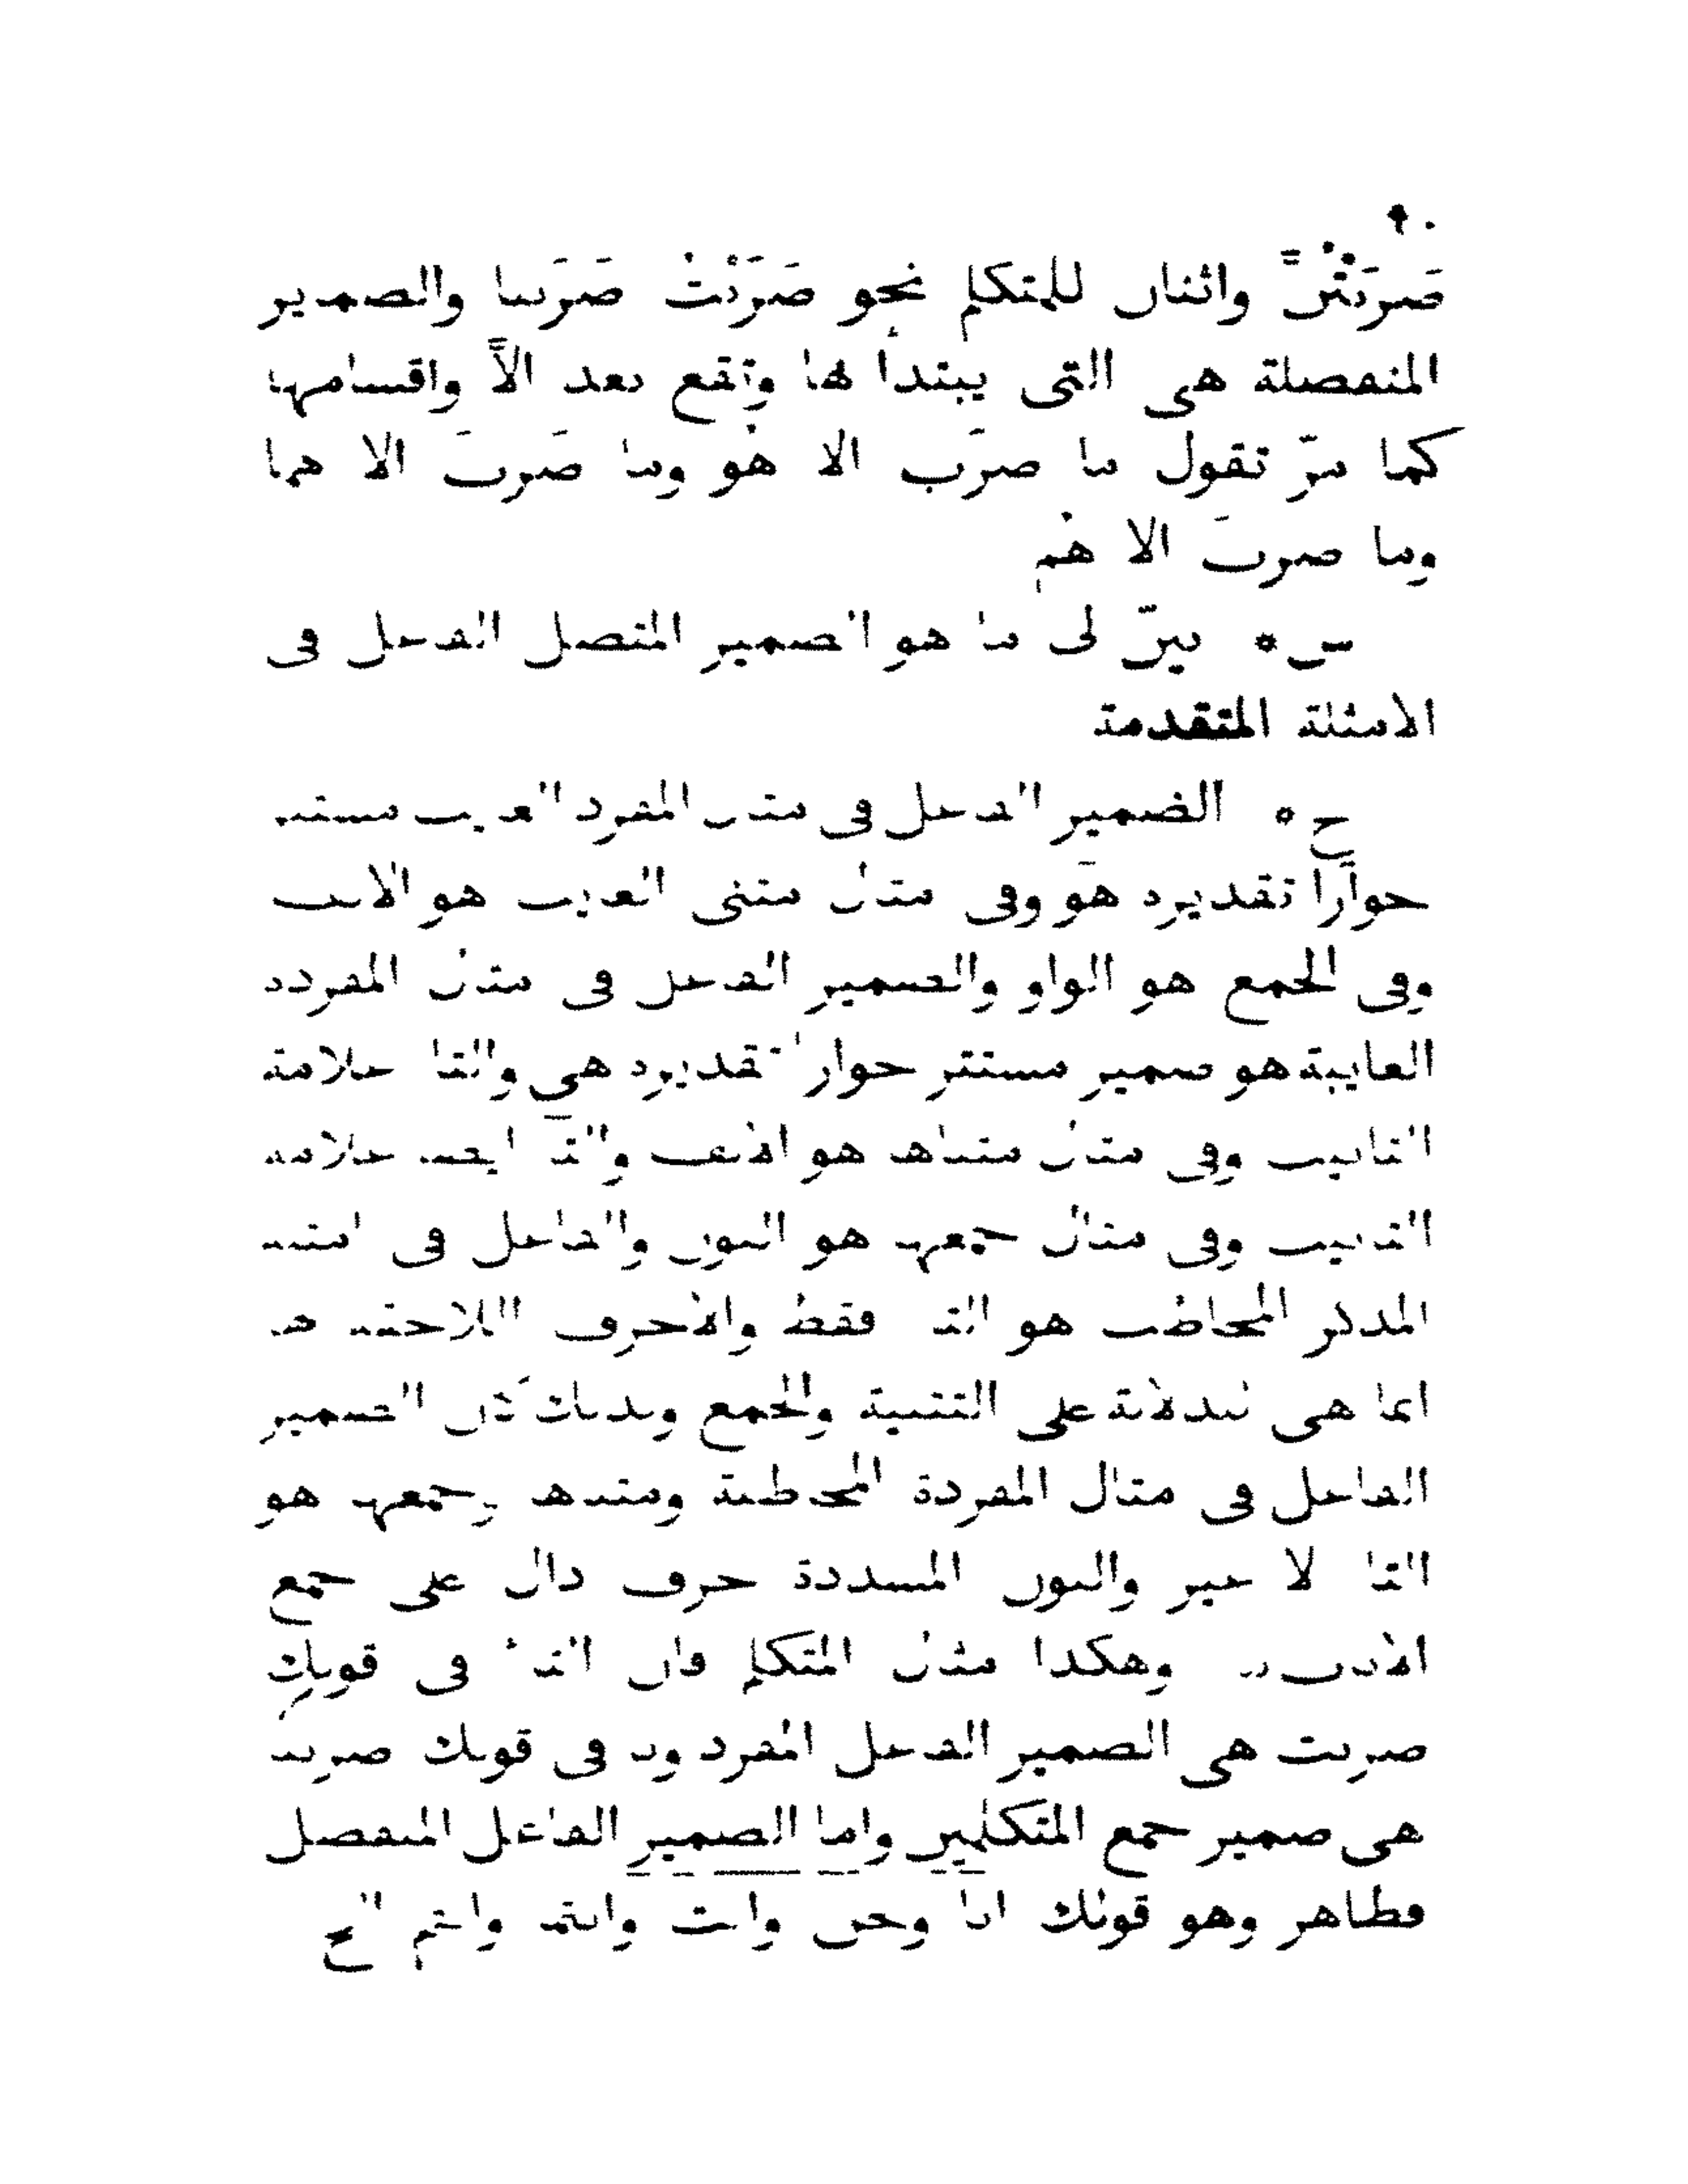 ٩٠
ضَرَبْتُنَّ واثنان للمتكلم نحو ضَرَبْتُ ضَرَبنا والضمير
المنفصلة هى التى يبتدأ بها وتقع بعد الاّ واقسامها
كما مرّ تقول ما ضرَب الا هُو وما ضَربَ الا هما
وما ضربَ الا هُم
س * بيّن لى ما هو الضمير المتصل الفاعل فى
الامثلة المتقدمة
ج * الضمير الفاعل فى مثال المفرد الغايب مستتر
جوازًا تقديره هو وفى مثال مثنى الغايب هو الالف
وفى الجمع هو الواو والضمير الفاعل فى مثال المفردة
الغايبة هو ضمير مستتر جوازا تقديره هى والتا علامة
التانيث وفى مثال مثناها هو الالف والتا ايضا علامة
التانيث وفى مثال جمعها هو النون والفاعل فى امثلة
المذكر المخاطب هو التا فقط والاحرف اللاحقة بها
انما هى للدلالة على التثنية والجمع وبذلك الضمير
الفاعل فى مثال المفردة المخاطبة ومثناها وجمعها هو
التا لا غير والنون المشددة حرف دال على جمع
الاناث وهكذا مثال المتكلم فان التا فى قولك
ضربت هى الضمير الفاعل المفرد ونا فى قولك ضربنا
هى ضمير جمع المتكلمين واما الضمير الفاعل المنفصل
فظاهر وهو قولك انا ونحن وانت وانتما وانتم الخ